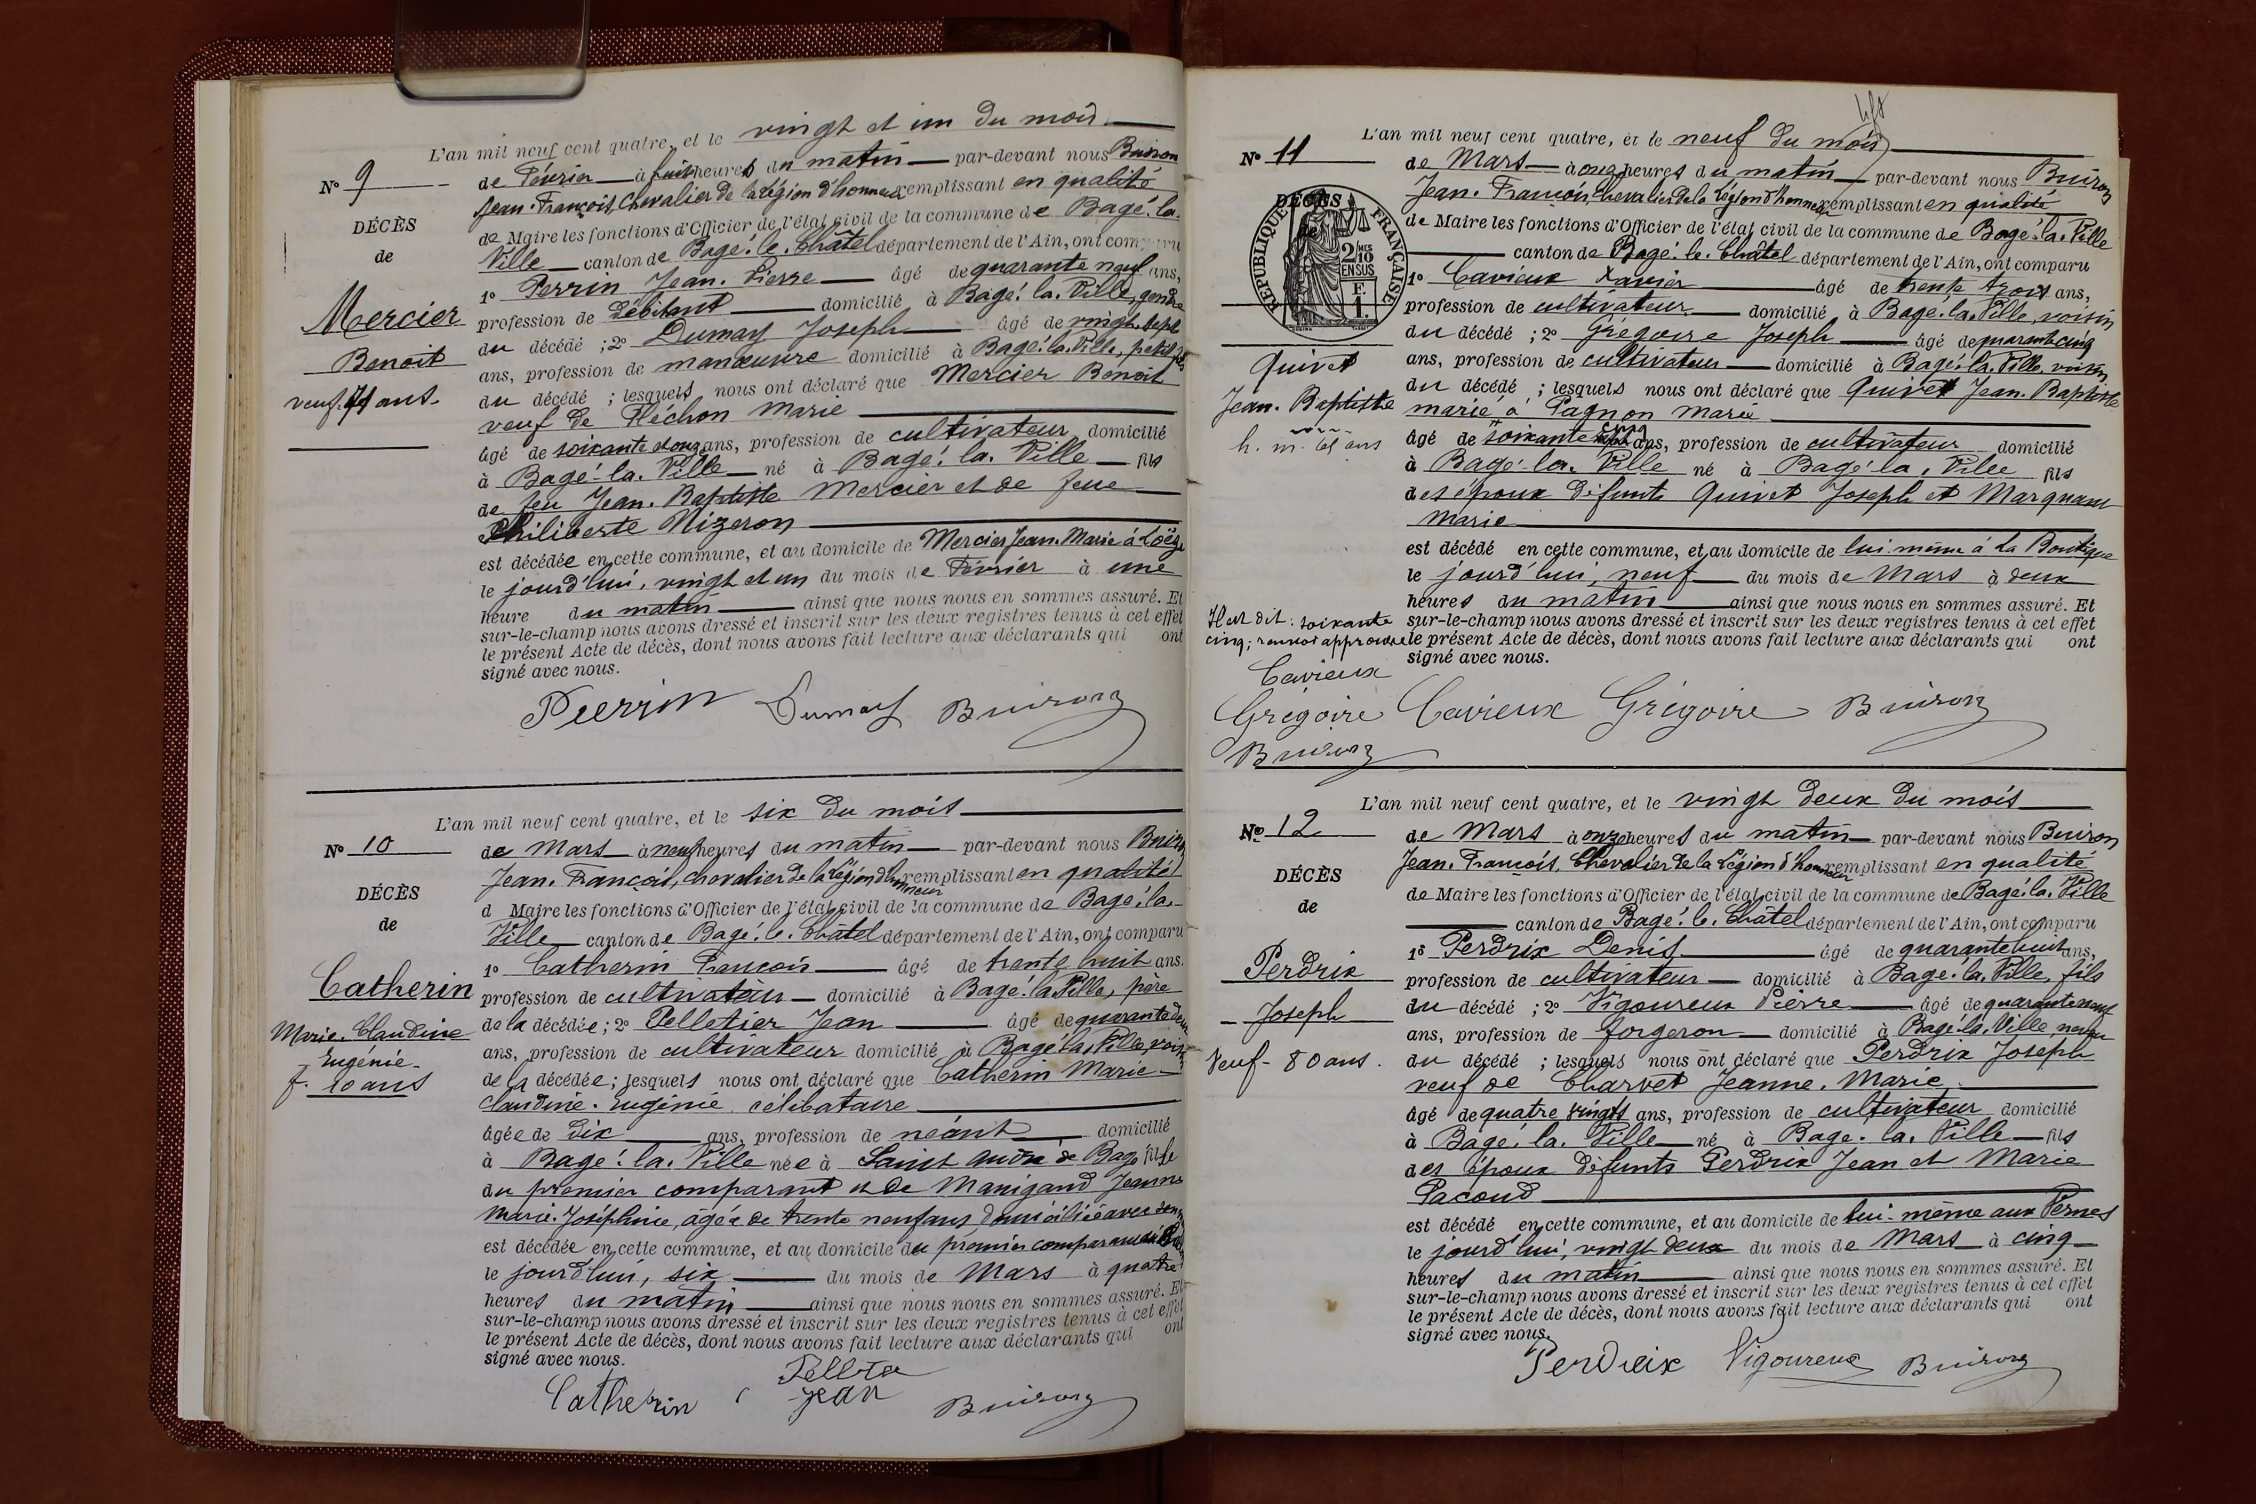 L'an mil neuf cent quatre, et le vingt et un du mois
N° 9
de Février à huit heures du matin par-devant nous Buiron
Jean-François, Chevalier de la Légion d'honneur remplissant en qualité
DÉCÈS
de Maire les fonctions d'Officier de l'état civil de la commune de Bagé-la-
de
Ville canton de Bagé-le-Châtel département de l'Ain, ont comparu
1° Perrin Jean-Pierre âgé de quarante neuf ans,
Mercier
profession de Débitant domicilié à Bagé-la-Ville, gendre
du décédé ; 2° Dumay Joseph âgé de vingt sept
Benoit
ans, profession de manœuvre domicilié à Bagé-la-Ville, petit fils
veuf 71 ans.
du décédé ; lesquels nous ont déclaré que Mercier Benoit
veuf de Fléchon Marie
âgé de soixante et onze ans, profession de cultivateur domicilié
à Bagé-la-Ville né à Bagé-la-Ville fils
de feu Jean-Baptiste Mercier et de feue
Philiberte Nizeron
est décédée en cette commune, et au domicile de Mercier Jean-Marie à Loëze
le jourd'hui, vingt et un du mois de Février à une
heure du matin ainsi que nous nous en sommes assuré. Et
sur-le-champ nous avons dressé et inscrit sur les deux registres tenus à cet effet
le présent Acte de décès, dont nous avons fait lecture aux déclarants qui ont
signé avec nous.
Perrin Dumay Buiron
L'an mil neuf cent quatre, et le six du mois
N° 10
de Mars à neuf heures du matin par-devant nous Buiron
Jean-François, chevalier de la Légion d'honneur remplissant en qualité
DÉCÈS
d Maire les fonctions d'Officier de l'état civil de la commune de Bagé-la-
de
Ville canton de Bagé-le-Châtel département de l'Ain, ont comparu
1° Catherin François âgé de trente huit ans.
Catherin
profession de cultivateur domicilié à Bagé-la-Ville, père
Marie-Claudine
de la décédée ; 2° Pelletier Jean âgé de quarante deux
Eugénie
ans, profession de cultivateur domicilié à Bagé-la-Ville, voisin
f. 10 ans
de la décédée ; lesquels nous ont déclaré que Catherin Marie-
Claudine-Eugénie célibataire
âgée de dix ans, profession de néant domicilié
à Bagé-la-Ville née à Saint André de Bagé fille
du premier comparant et de Manigand Jeanne
Marie-Joséphine, âgée de trente neuf ans domiciliée avec
est décédée en cette commune, et au domicile du premier comparant
le jourd'hui, six du mois de Mars à quatre
heures du matin ainsi que nous nous en sommes assuré. Et
sur-le-champ nous avons dressé et inscrit sur les deux registres tenus à cet effet
le présent Acte de décès, dont nous avons fait lecture aux déclarants qui ont
signé avec nous.
Catherin Jean Buiron
L'an mil neuf cent quatre, et le neuf du mois
N° 11
de Mars à onze heures du matin par-devant nous Buiron
Jean-François, Chevalier de la Légion d'honneur remplissant en qualité
DÉCÈS
de
RÉPUBLIQUE FRANÇAISE
2/10 MES EN SUS
F. 1.
de Maire les fonctions d'Officier de l'état civil de la commune de Bagé-la-Ville
canton de Bagé-le-Châtel département de l'Ain, ont comparu
1° Cavieux Xavier âgé de trente trois ans,
profession de cultivateur domicilié à Bagé-la-Ville, voisin
du décédé ; 2° Grégoire Joseph âgé de quarante cinq
Quivet
ans, profession de cultivateur domicilié à Bagé-la-Ville, voisin
Jean-Baptiste
du décédé ; lesquels nous ont déclaré que Quivet Jean-Baptiste
marié à Pagnon Marie
h. m. 65 ans
âgé de soixante cinq ans, profession de cultivateur domicilié
à Bagé-la-Ville né à Bagé-la-Ville fils
des époux défunts Quivet Joseph et Marquand
Marie
est décédé en cette commune, et au domicile de lui-même à La Boutique
le jourd'hui, neuf du mois de Mars à deux
heures du matin ainsi que nous nous en sommes assuré. Et
Il est dit : soixante
sur-le-champ nous avons dressé et inscrit sur les deux registres tenus à cet effet
cinq ; renvoi approuvé
le présent Acte de décès, dont nous avons fait lecture aux déclarants qui ont
signé avec nous.
Cavieux
Grégoire
Buiron
Cavieux Grégoire Buiron
L'an mil neuf cent quatre, et le vingt deux du mois
N° 12
de Mars à onze heures du matin par-devant nous Buiron
Jean-François, Chevalier de la Légion d'honneur remplissant en qualité
DÉCÈS
de Maire les fonctions d'Officier de l'état civil de la commune de Bagé-la-Ville
de
canton de Bagé-le-Châtel département de l'Ain, ont comparu
1° Perdrix Denis âgé de quarante huit ans,
Perdrix
profession de cultivateur domicilié à Bagé-la-Ville, fils
Joseph
du décédé ; 2° Vigoureux Pierre âgé de quarante neuf
ans, profession de forgeron domicilié à Bagé-la-Ville, neveu
Veuf - 80 ans.
du décédé ; lesquels nous ont déclaré que Perdrix Joseph
veuf de Charvet Jeanne-Marie
âgé de quatre vingts ans, profession de cultivateur domicilié
à Bagé-la-Ville né à Bagé-la-Ville fils
des époux défunts Perdrix Jean et Marie
Pacoud
est décédé en cette commune, et au domicile de lui-même aux Pernes
le jourd'hui, vingt deux du mois de Mars à cinq
heures du matin ainsi que nous nous en sommes assuré. Et
sur-le-champ nous avons dressé et inscrit sur les deux registres tenus à cet effet
le présent Acte de décès, dont nous avons fait lecture aux déclarants qui ont
signé avec nous.
Perdrix Vigoureux Buiron